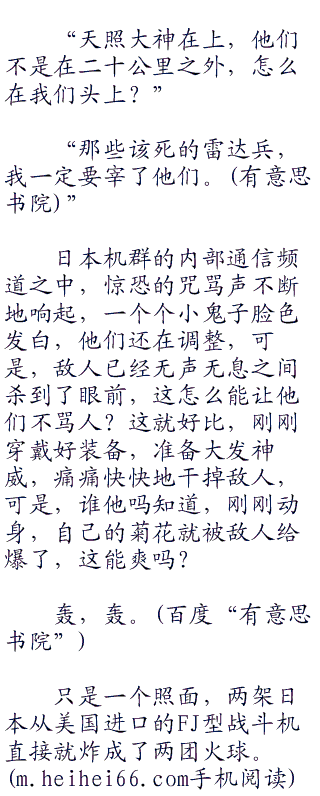 “天照大神在上，他们
不是在二十公里之外，怎么
在我们头上？”
“那些该死的雷达兵，
我一定要宰了他们。(有意思
书院)”
日本机群的内部通信频
道之中，惊恐的咒骂声不断
地响起，一个个小鬼子脸色
发白，他们还在调整，可
是，敌人已经无声无息之间
杀到了眼前，这怎么能让他
们不骂人？这就好比，刚刚
穿戴好装备，准备大发神
威，痛痛快快地干掉敌人，
可是，谁他吗知道，刚刚动
身，自己的菊花就被敌人给
爆了，这能爽吗？
轰，轰。(百度“有意思
书院”)
只是一个照面，两架日
本从美国进口的FJ型战斗机
直接就炸成了两团火球。
(m.heihei66.com手机阅读)